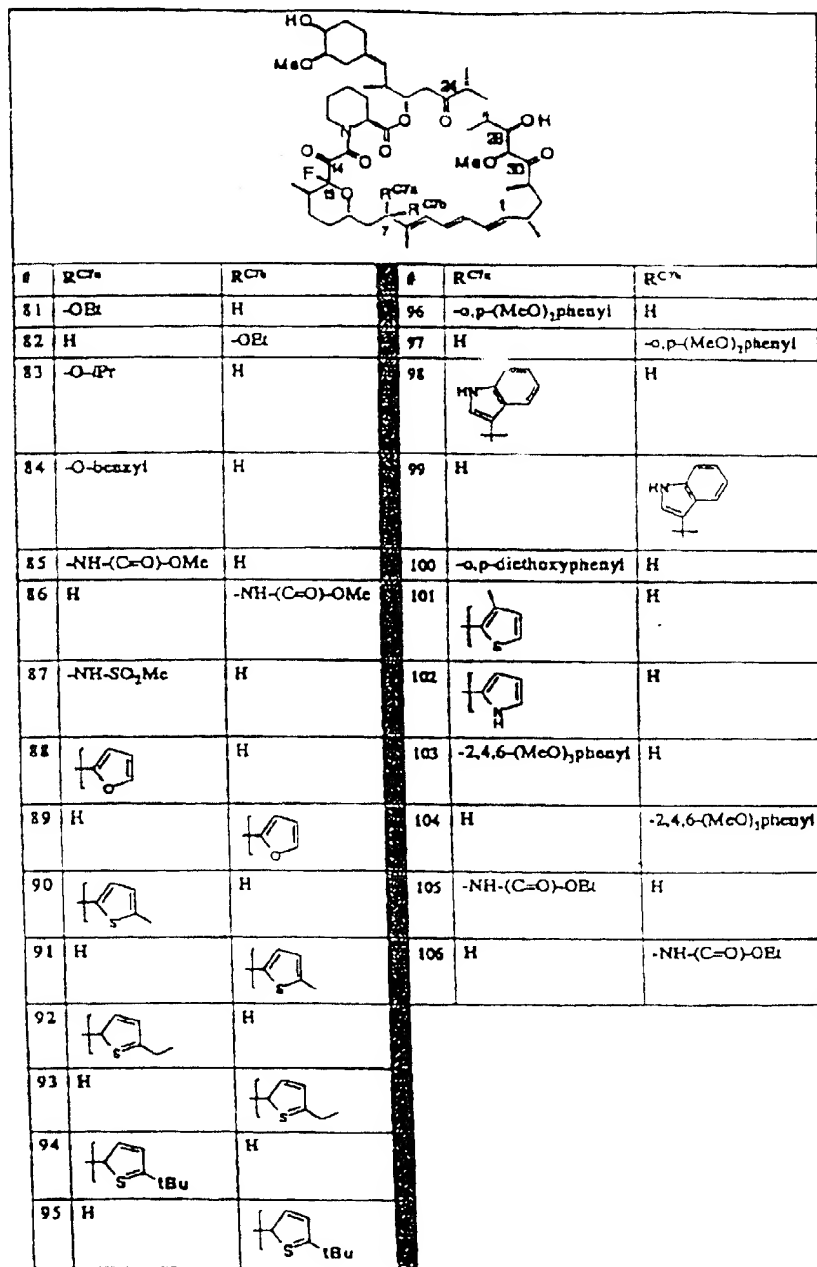 HO
MeO
24
O
O
OH
N
O
28
O
O
14
O
MeO
30
F
13
O
R C7a
R C7b
1
7
# R C7a R C7b
81 -OEt H
82 H -OEt
83 -O-iPr H
84 -O-benzyl H
85 -NH-(C=O)-OMe H
86 H -NH-(C=O)-OMe
87 -NH-SO2Me H
88 O H
89 H O
90 S H
91 H S
92 S H
93 H S
94 S tBu H
95 H S tBu
# R C7a R C7b
96 -o,p-(MeO)2phenyl H
97 H -o,p-(MeO)2phenyl
98 HN H
99 H HN
100 -o,p-diethoxyphenyl H
101 S H
102 N H H
103 -2,4,6-(MeO)3phenyl H
104 H -2,4,6-(MeO)3phenyl
105 -NH-(C=O)-OEt H
106 H -NH-(C=O)-OEt